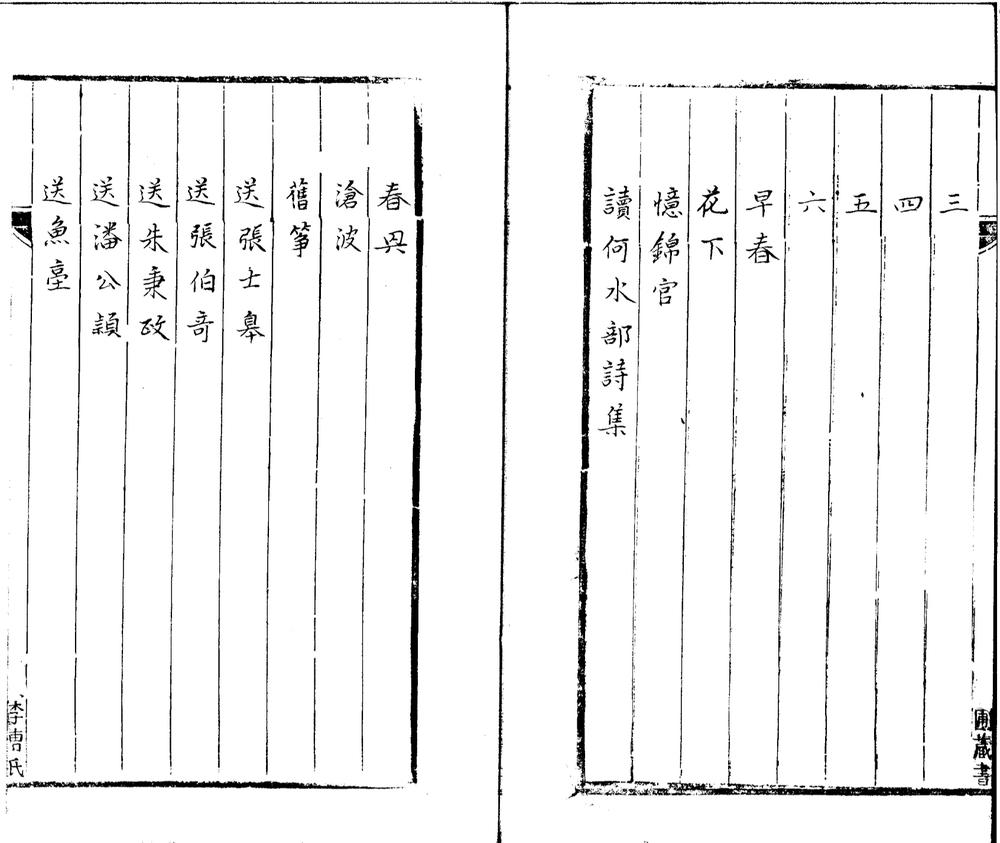 三
四
五
六
早春
花下
憶錦官
讀何水部詩集
藏書
春
滄波
舊箏
送張士臯
送張伯竒
送朱秉政
送潘公頴
送魚臺
李曹氏